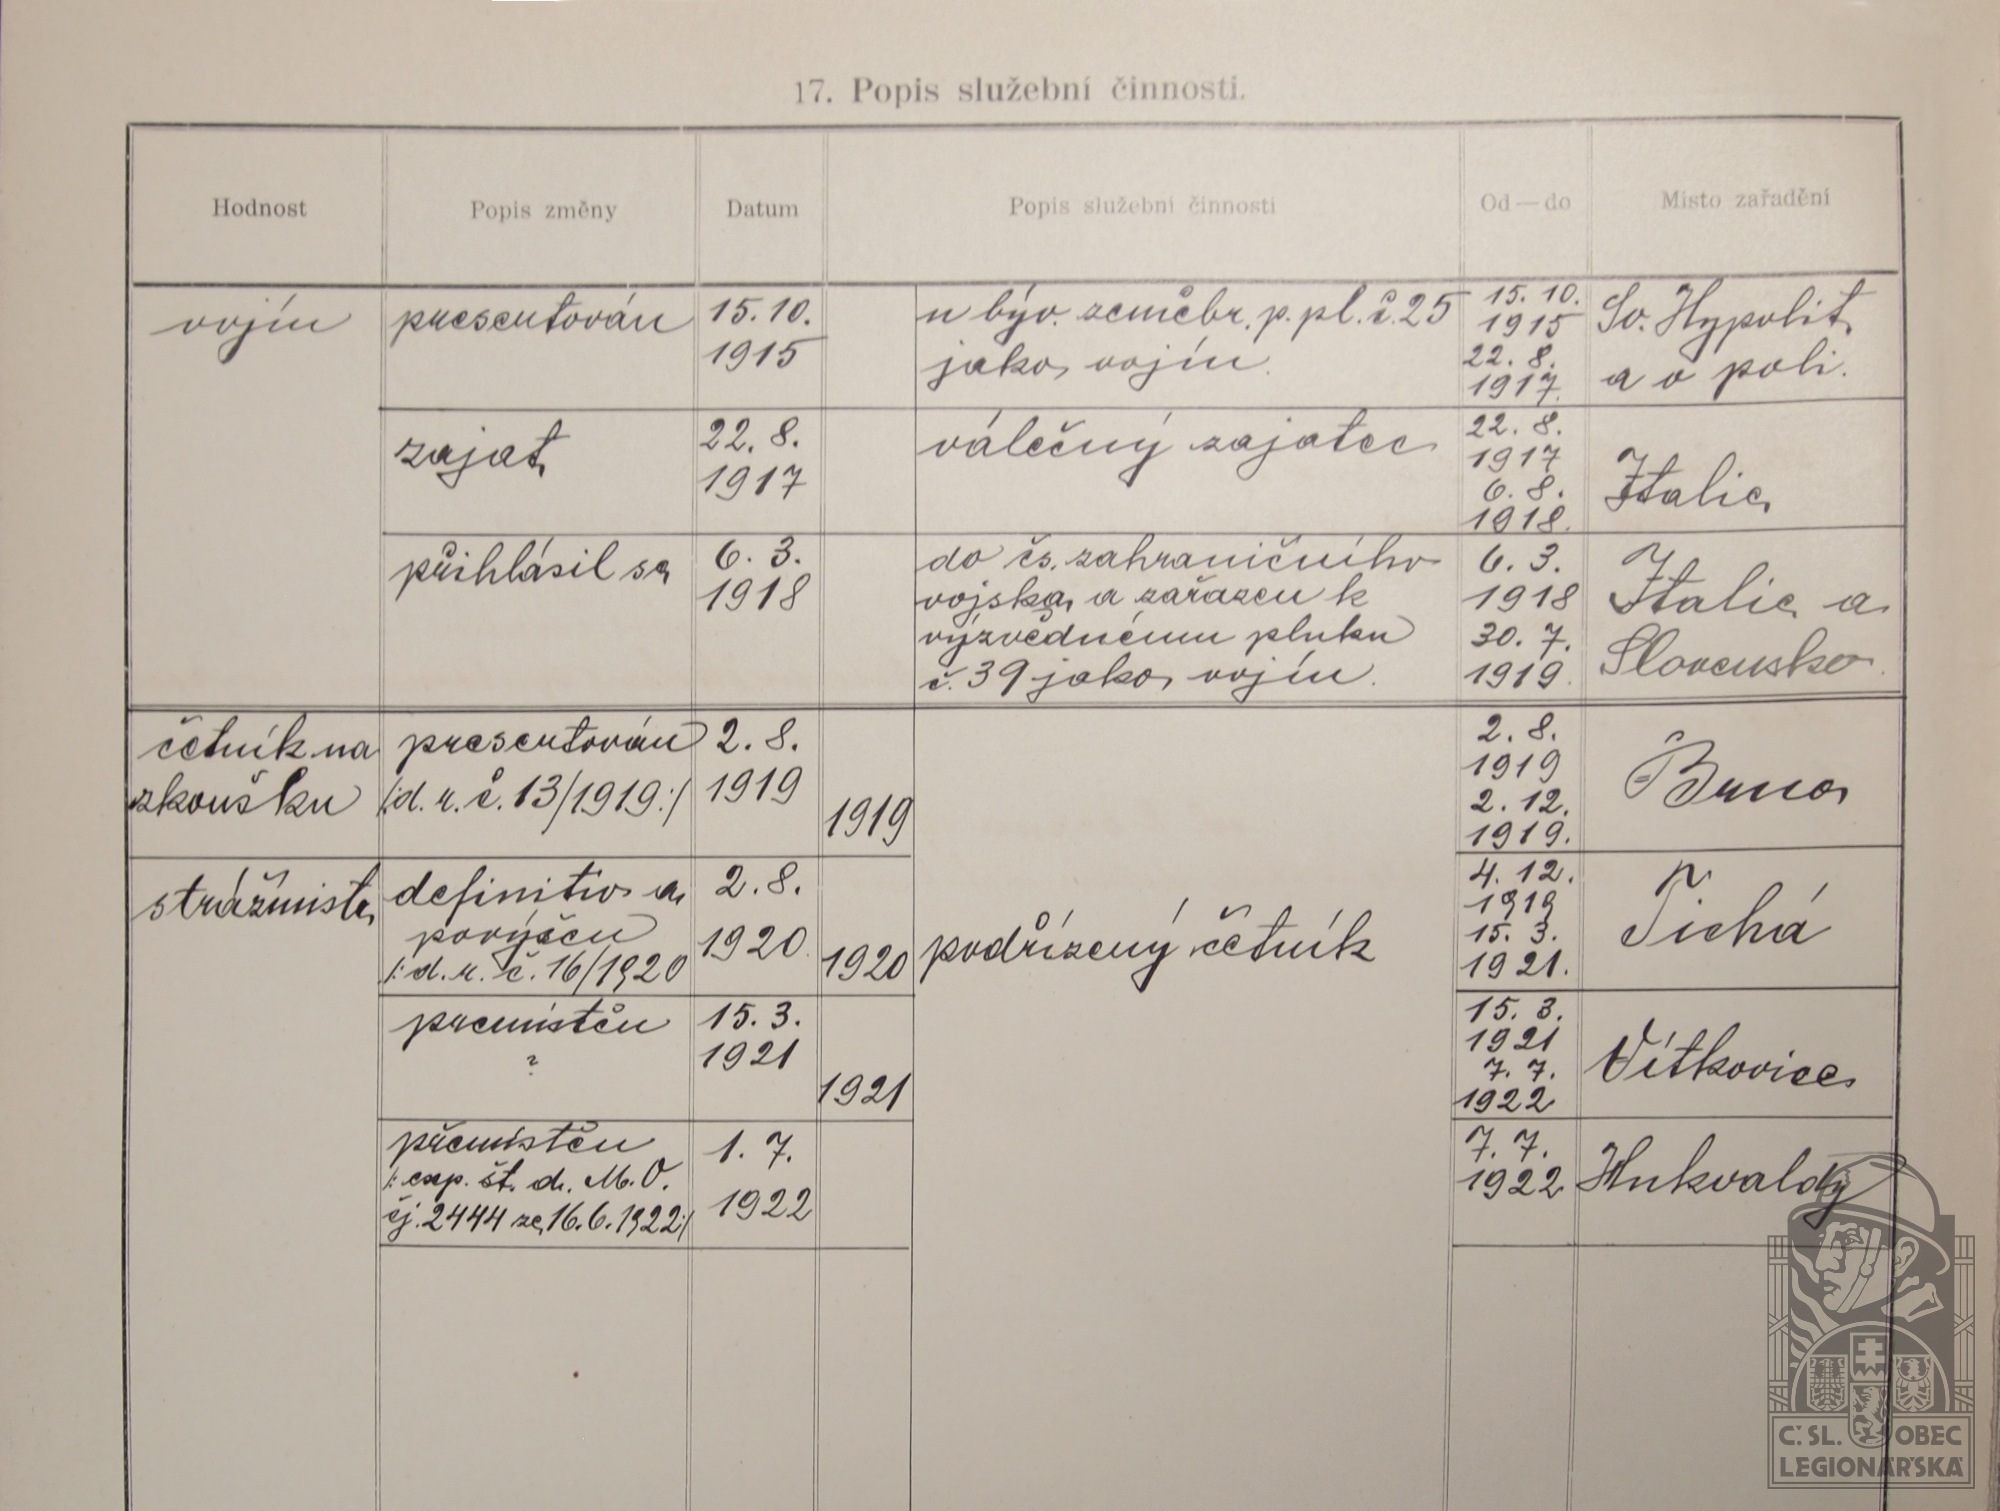 17. Popis služební činnosti.
Hodnost Popis změny Datum Popis služební činnosti Od — do Místo zařadění
vojín presentován 15. 10. u býv. zeměbr. p. pl. č. 25 15. 10. Sv. Hypolit
1915 jako vojín. 1915 a v poli.
22. 8.
1917.
zajat 22. 8. válečný zajatec 22. 8. Italie
1917 1917
6. 8.
1918.
přihlásil se 6. 3. do čs. zahraničního 6. 3. Italie a
1918 vojska a zařazen k 1918 Slovensko.
výzvědnému pluku 30. 7.
č. 39 jako vojín. 1919.
četník na presentován 2. 8. 2. 8. Brno
zkoušku /:d. r. č. 13/1919:/ 1919 1919 1919
2. 12.
1919.
strážmistr definitiv a 2. 8. 4. 12. Tichá
povýšen 1920. 1920 podřízený četník 1919
/: d. r. č. 16/1920 15. 3.
1921.
premístěn 15. 3. 15. 3. Vítkovice
? 1921 1921 1921
7. 7.
1922
přemístěn 1. 7. 7. 7. Hukvaldy
/: exp. št. d. M. O. 1922 1922
čj. 2444 ze 16. 6. 1922:/
Č. SL. OBEC
LEGIONÁŘSKÁ